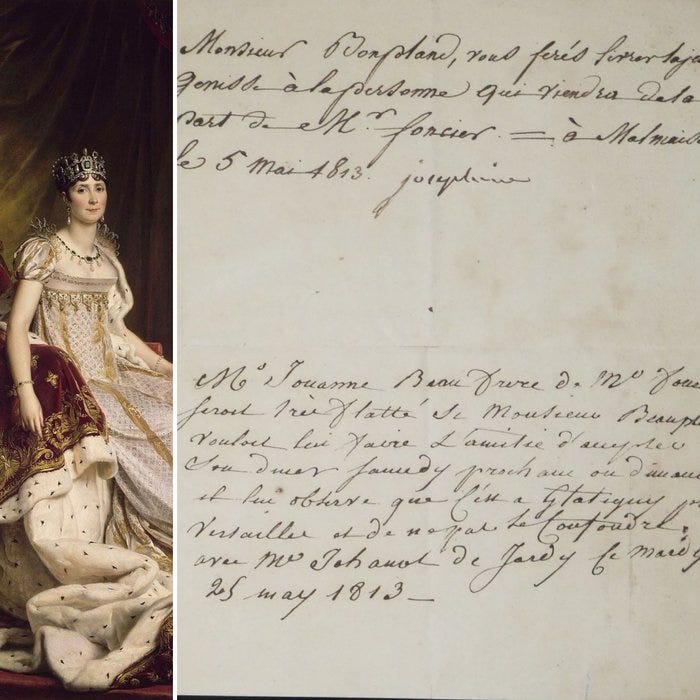 Monsieur Bonpland, vous ferés livrer la
genisse à la personne qui viendra de la
part de Mr. foncier. = à Malmais
le 5 mai 1813. joséphine
Mr Jouanne Beau frere de Mr
seroit très flatté si Monsieur Beaupl
vouloit lui faire L'amitié d'accepter
Son diner samedy prochain ou dimanc
et lui observe que C'est a Glatigny pr
Versailles et de ne pas le Confondre
avec Mr de Jardy Ce mardy
25 may 1813 _